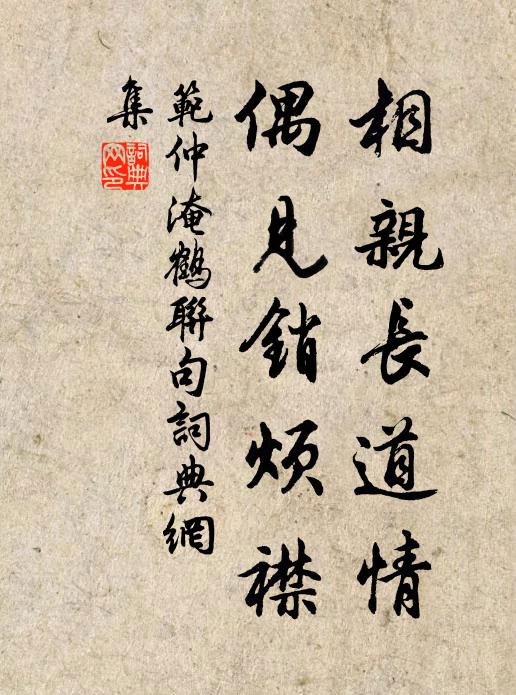 相親長道情
偶見銷煩襟
範仲淹鶴聯句詞典網
集
詞典網印